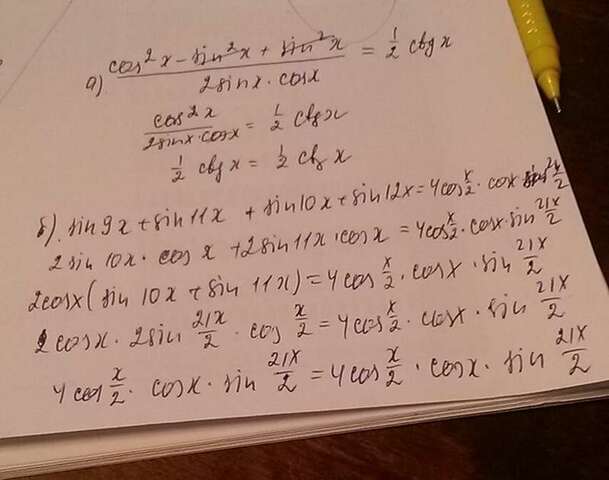 а) (cos²x - sin²x + sin²x)/(2sinx · cosx) = 1/2 ctg x
cos²x/(2sinx·cosx) = 1/2 ctgx
1/2 ctg x = 1/2 ctg x
б). sin 9x + sin 11x + sin 10x + sin 12x = 4cos x/2 · cosx
2 sin 10x · cos x + 2 sin 11x · cos x = 4cos x/2 · cosx · sin 21x/2
2cosx (sin 10x + sin 11x) = 4 cos x/2 · cosx · sin 21x/2
2 cosx · 2sin 21x/2 · cos x/2 = 4cos x/2 · cosx · sin 21x/2
4 cos x/2 · cosx · sin 21x/2 = 4cos x/2 · cosx · sin 21x/2